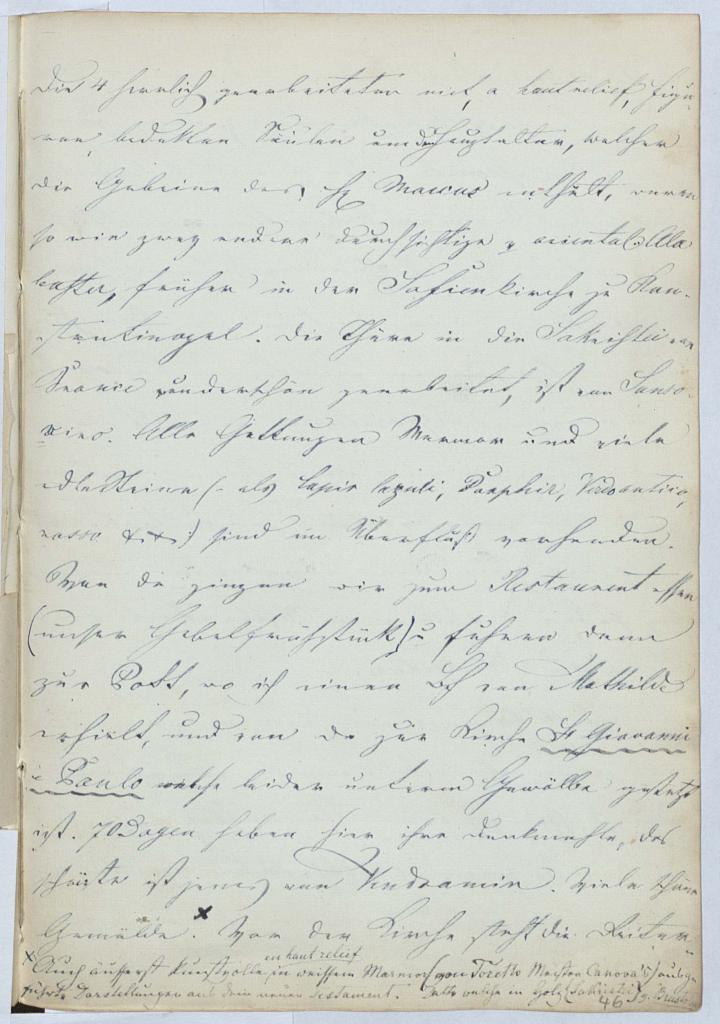 Die 4 herrlich gearbeiteten mit à haut relief, Figu
ren, bedekten Säulen um den Hauptaltar, welcher
die Gebeine des Hg Marcus enthält, waren
so wie zwey andere durchsichtige v. oriental: Ala
baster, früher in der Sofienkirche zu Kon-
stantinopel. Die Thüre in die Sakristei von
wunderschön gearbeitet, ist von Sanso-
vino. Alle Gattungen Marmor und viele
edle Steine (: als Lapis lazuli, Porphir, Verdo antico,
rosso :) sind im Überfluß vorhanden.
Von da gingen wir zum Restaurant essen
(unser Gabelfrühstück) u fuhren dann
zur Post, wo ich einen Bf von Mathilde
erhielt, und von da zur Kirche St Giovanni
e Paulo welche leider unterm Gewölbe gestützt
ist. 70 Dogen haben hier ihre Denkmahle, das
schönste ist jenes von Vendramin. Viele schöne
Gemälde. x Vor der Kirche steht die Reiter-
en haut relief
x Auch äusserst kunstvolle in weissem Marmor (von Toretto Meister Canova's) ausge
führte Darstellungen aus dem neuen Testament. welche in Holz (Sakristei)
46